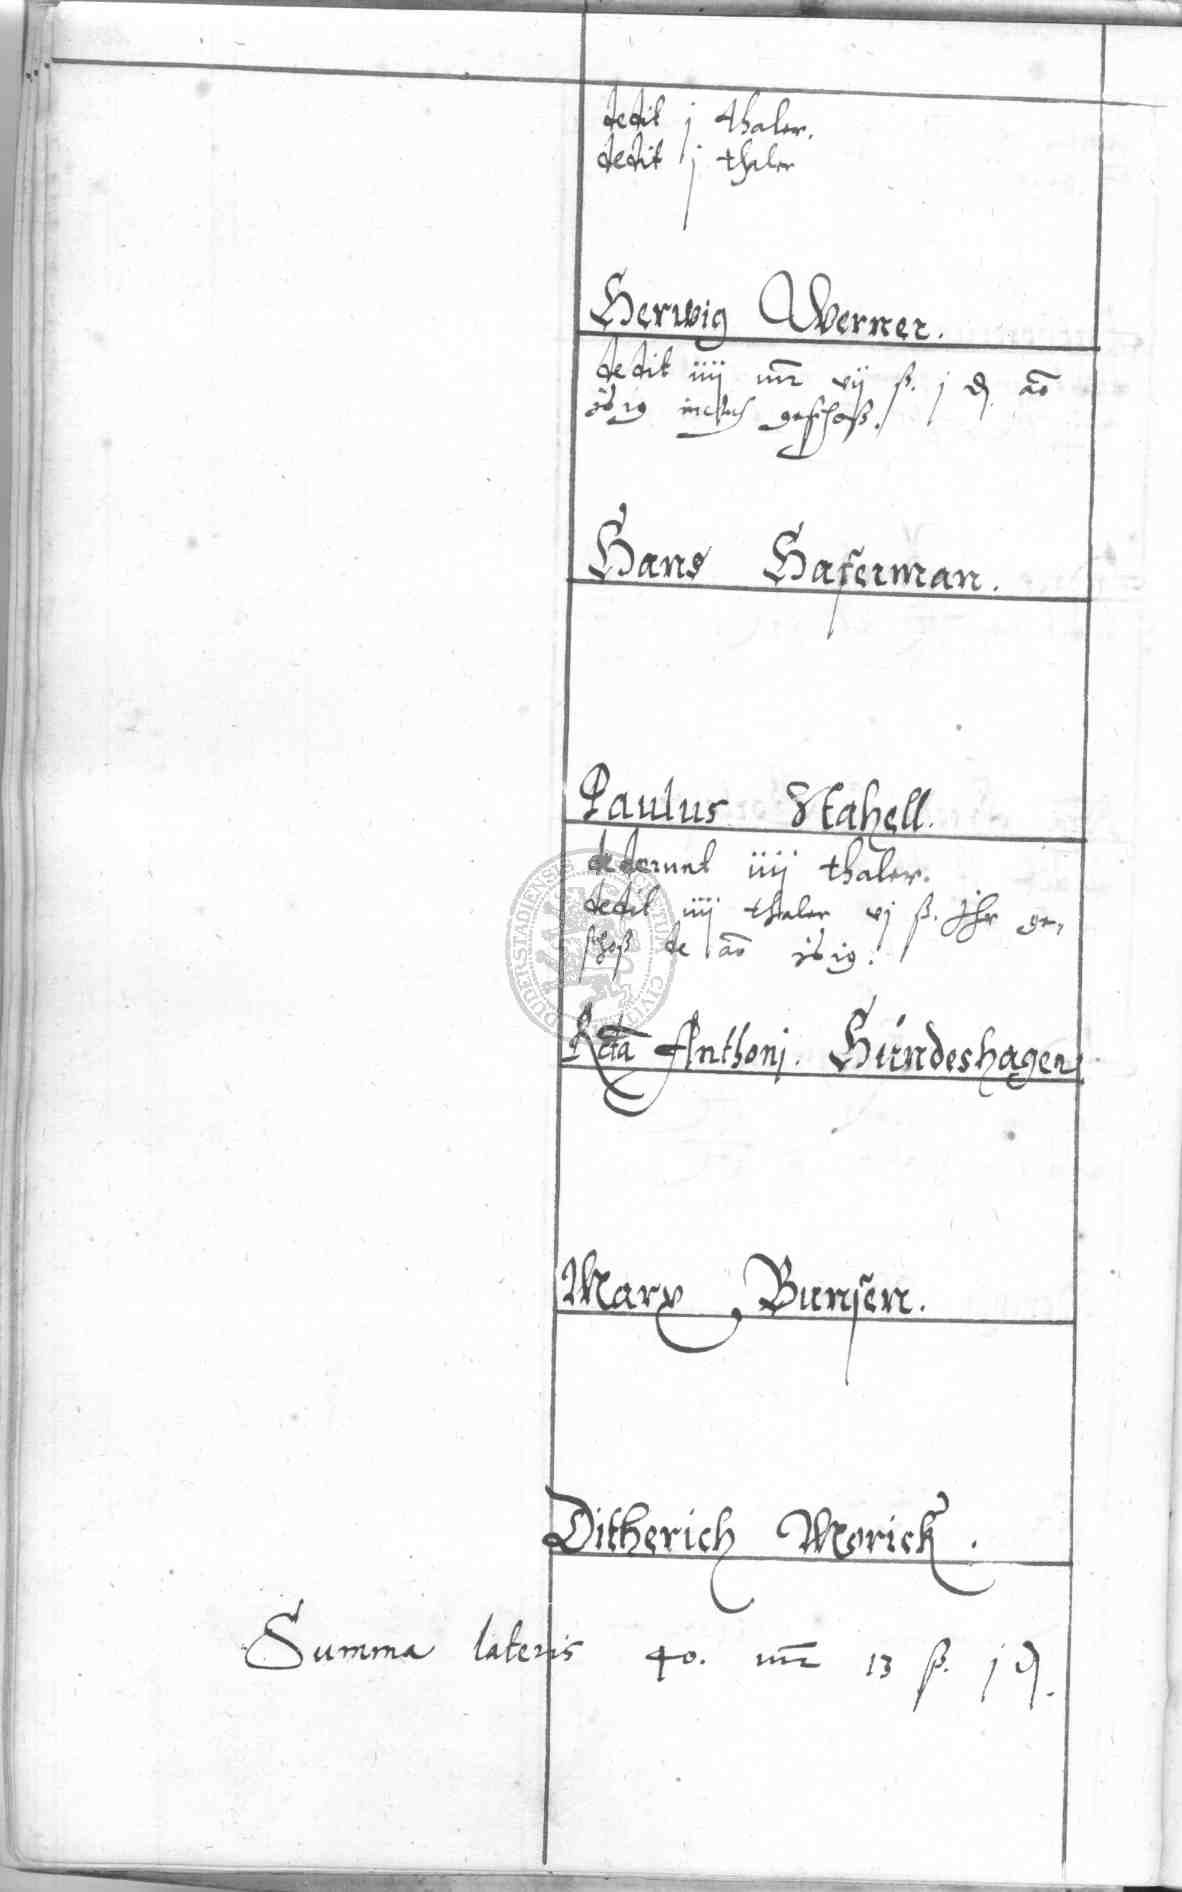 dedit j thaler.
dedit j thaler
Herwig Werner.
dedit iiij mr vij ß. j d. ao
geschoß.
Hans Haferman.
Paulus Stahell.
dederunt iiij thaler.
dedit iiij thaler vj ß. Ihr ge,
schoß de ao
Rcta Anthonj. Hundeshagen
Marx Bunsen.
Ditherich Morick.
Summa lateris 40. mr 13 ß. j d.